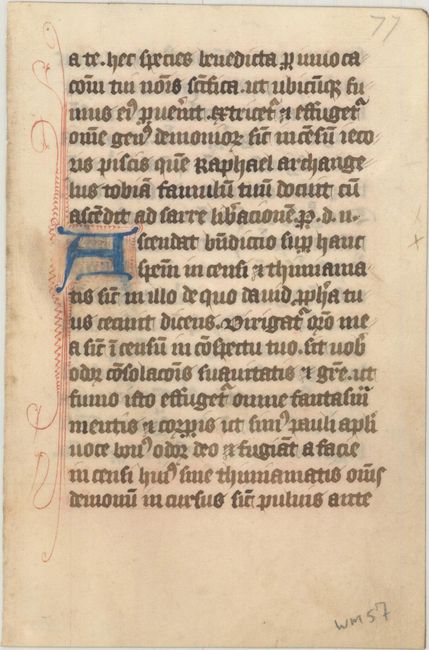 77
a te. hec species benedicta ꝑ inuoca
coīm tui nōis scīfica. ut ubicūqꝫ fu
mus eiꝰ ꝑuenerit. extricetᷣ ⁊ effugetᷣ
omē genꝰ demonioꝝ sicut incēsū ieco
ris piscis quē Raphael archange
lus tobiā famulū tuū docuit cū
ascēdit ad sarre libacionē. ꝑ. d. n.
Ascendat bn̄dictio suꝑ hanc
speciē incensi ⁊ thimiama
tis sicut in illo de quo dauid ꝓph̄a tu
us cecinit dicens. Dirigatᷣ oro me
a sicut īcensū in cōspectu tuo. sit nob̄
odor cōsolacōnis suauitatis ⁊ grē. ut
fumo isto effugetᷣ omne fantasma
mentis ⁊ corꝑis ut simꝰ pauli apl̄i
uoce bonꝰ odor deo ⁊ fugiāt a facie
incensi huiꝰ siue thimiamatis oīms
demonū incursus sicut puluis ante
WM57